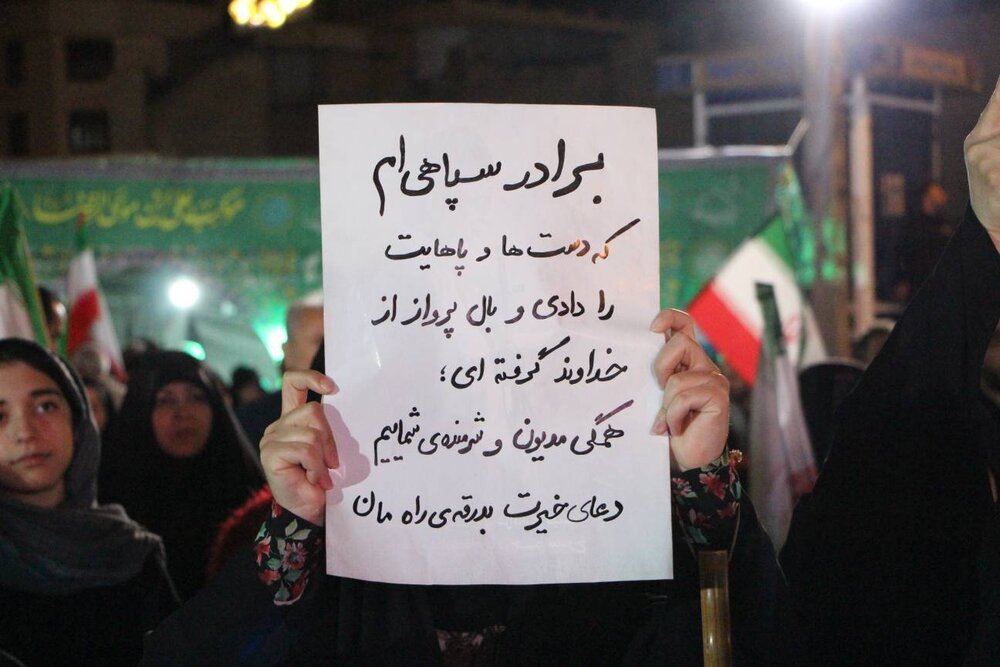 برادر سپاهی‌ام
که دست‌ها و پاهایت
را دادی و بال پرواز از
خداوند گرفته ای؛
همگی مدیون و شرمنده‌ی شماییم
دعای خیرت بدرقه‌ی راه مان